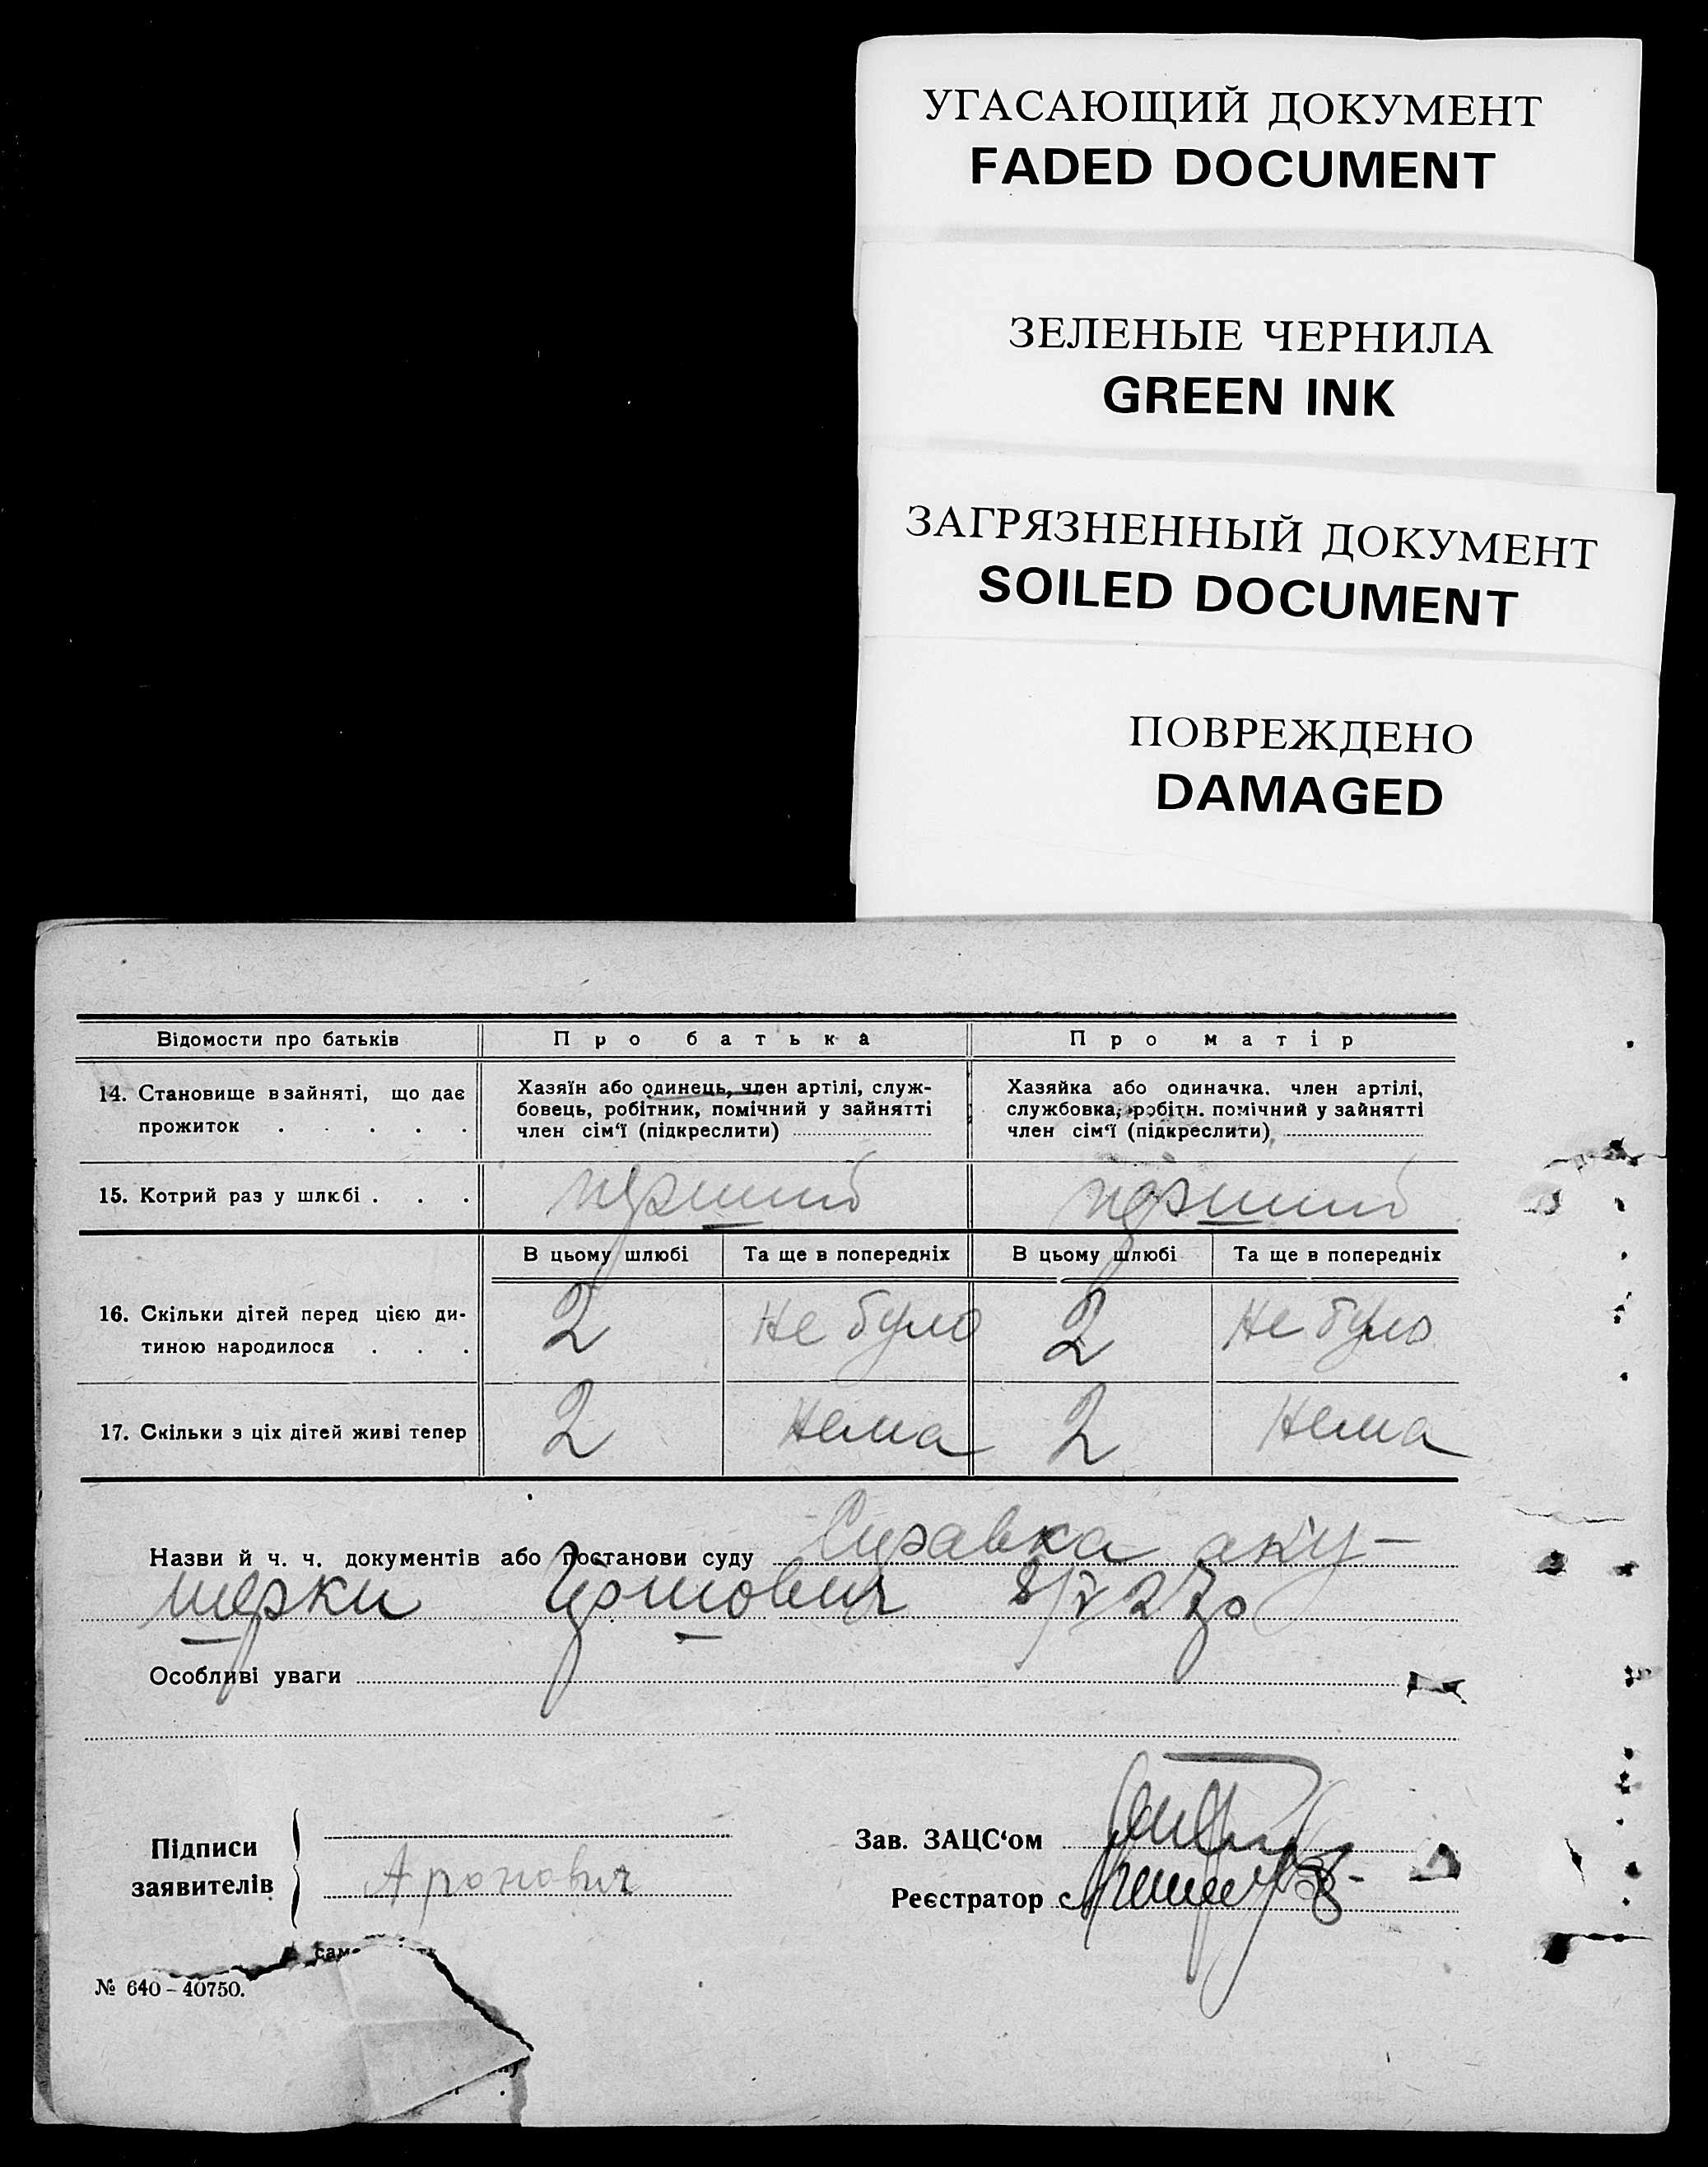 УГАСАЮЩИЙ ДОКУМЕНТ
FADED DOCUMENT
ЗЕЛЕНЫЕ ЧЕРНИЛА
GREEN INK
ЗАГРЯЗНЕННЫЙ ДОКУМЕНТ
SOILED DOCUMENT
ПОВРЕЖДЕНО
DAMAGED
Відомости про батьків
Про батька
Про матір
14. Становище в зайняті, що дає
прожиток . . . . .
Хазяїн або одинець, член артілі, служ-
бовець, робітник, помічний у зайнятті
член сім'ї (підкреслити)
Хазяйка або одиначка, член артілі,
службовка, робітн. помічний у зайнятті
член сім'ї (підкреслити)
15. Котрий раз у шлюбі . . .
перший
перший
В цьому шлюбі
Та ще в попередніх
В цьому шлюбі
Та ще в попередніх
16. Скільки дітей перед цією ди-
тиною народилося . . .
2
Не було
2
Не було
17. Скільки з ціх дітей живі тепер
2
Нема
2
Нема
Назви й ч. ч. документів або постанови суду Справка аку-
шерки
Особливі уваги
Підписи
заявителів
Аронович
Зав. ЗАЦС'ом
Реєстратор
№ 640-40750.